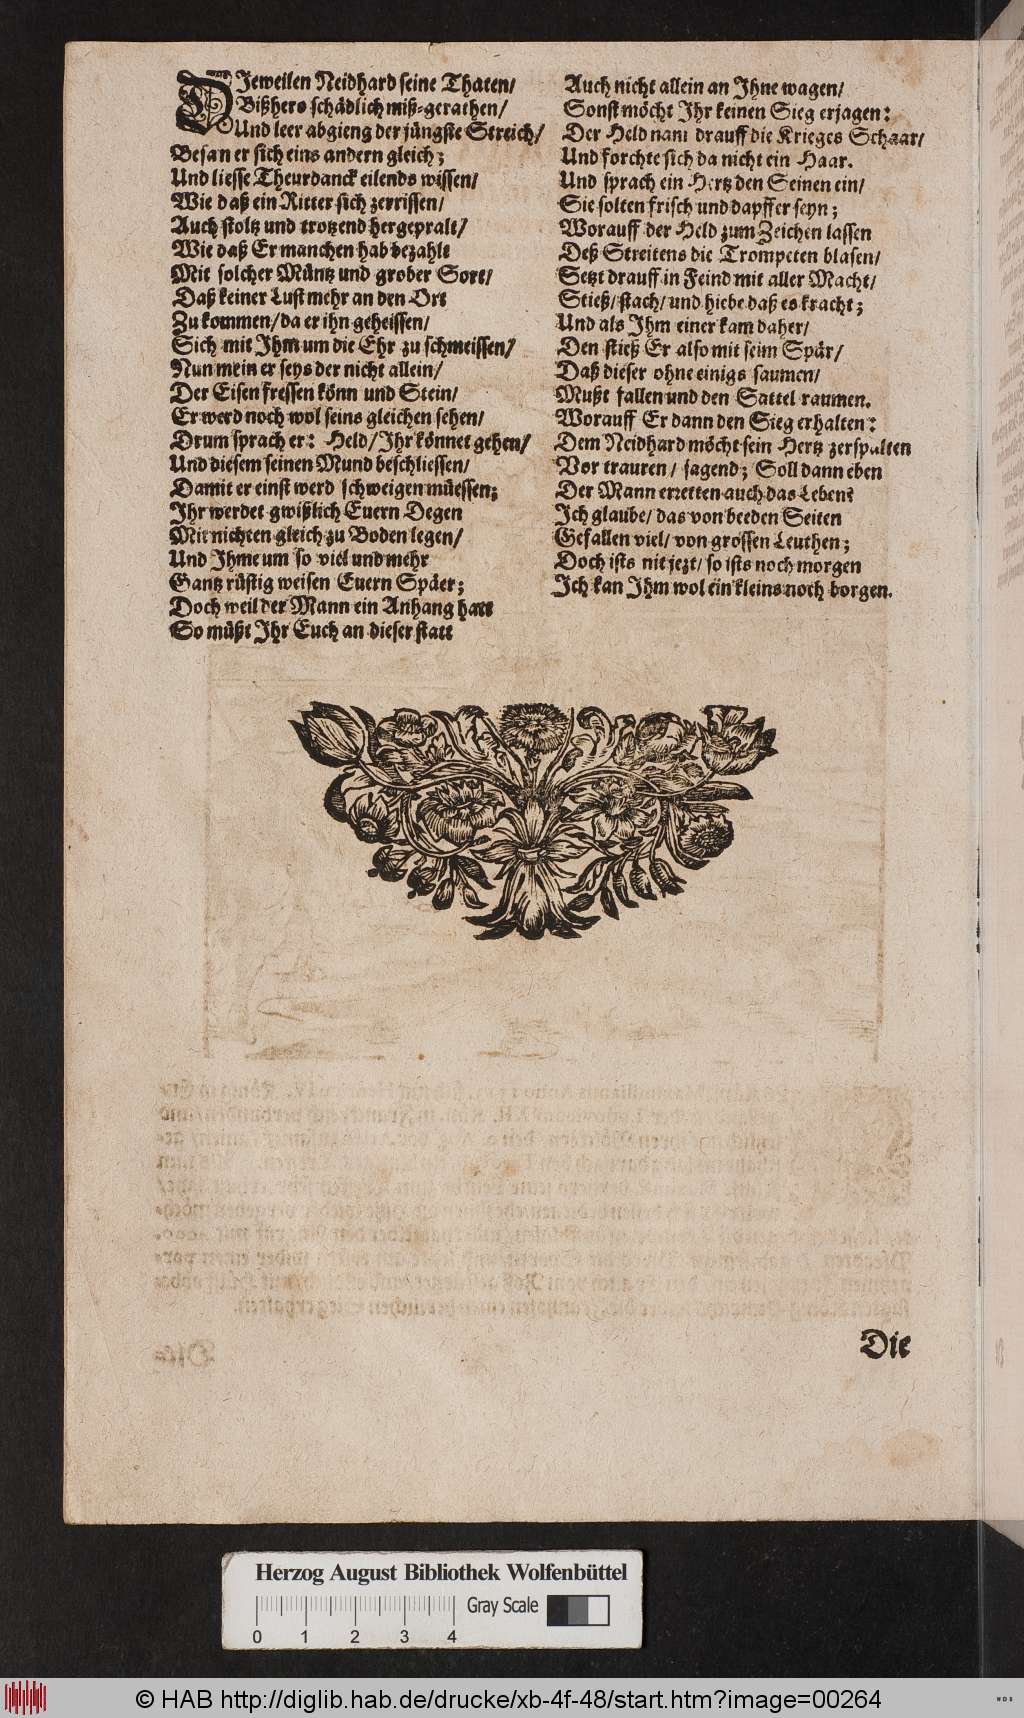 DJeweilen Neidhard seine Thaten/
Bißhero schädlich miß-gerathen/
Und leer abgieng der jüngste Streich/
Besan er sich eins andern gleich;
Und liesse Theurdanck eilends wissen/
Wie daß ein Ritter sich zerrissen/
Auch stoltz und trotzend hergepralt/
Wie daß Er manchen hab bezahlt
Mit solcher Müntz und grober Sort/
Daß keiner Lust mehr an den Ort
Zu kommen/ da er ihn geheissen/
Sich mit Jhm um die Ehr zu schmeissen/
Nun mein er seys der nicht allein/
Der Eisen fressen könn und Stein/
Er werd noch wol seins gleichen sehen/
Drum sprach er: Held/ Jhr könnet gehen/
Und diesem seinen Mund beschliessen/
Damit er einst werd schweigen müessen;
Jhr werdet gwißlich Euern Degen
Mit nichten gleich zu Boden legen/
Und Jhme um so viel und mehr
Gantz rüstig weisen Euern Späer;
Doch weil der Mann ein Anhang hatt
So müßt Jhr Euch an dieser statt
Auch nicht allein an Jhne wagen/
Sonst möcht Jhr keinen Sieg erjagen:
Der Held nam drauff die Krieges Schaar/
Und forchte sich da nicht ein Haar.
Und sprach ein Hertz den Seinen ein/
Sie solten frisch und dapffer seyn;
Worauff der Held zum Zeichen lassen
Deß Streitens die Trompeten blasen/
Setzt drauff in Feind mit aller Macht/
Stieß/ stach/ und hiebe daß es kracht;
Und als Jhm einer kam daher/
Den stieß Er also mit seim Spär/
Daß dieser ohne einigs saumen/
Mußt fallen und den Sattel raumen.
Worauff Er dann den Sieg erhalten:
Dem Neidhard möcht sein Hertz zerspalten
Vor trauren/ sagend; Soll dann eben
Der Mann erretten auch das Leben?
Jch glaube/ das von beeden Seiten
Gefallen viel/ von grossen Leuthen;
Doch ists nit jezt/ so ists noch morgen
Jch kan Jhm wol ein kleins noch borgen.
Die
Herzog August Bibliothek Wolfenbüttel
Gray Scale
0 1 2 3 4
© HAB http://diglib.hab.de/drucke/xb-4f-48/start.htm?image=00264